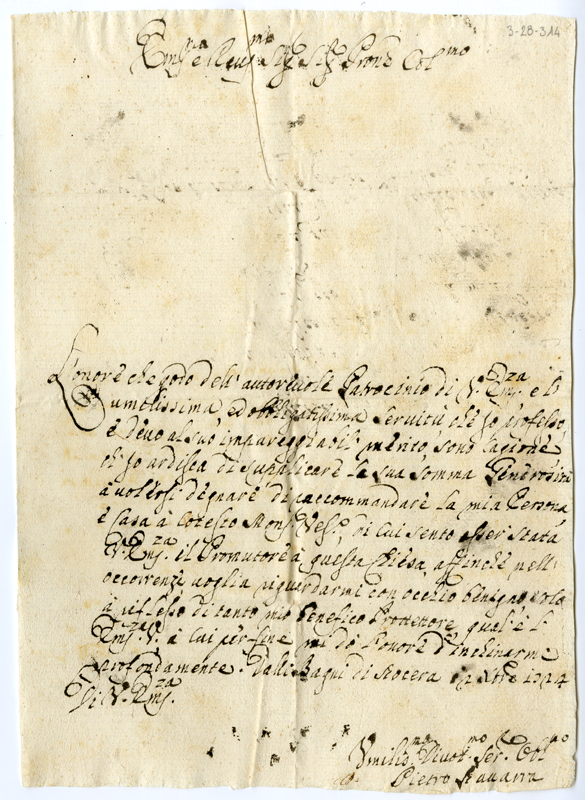 3-28-314
Em.mo e Reu.mo Sig.r Sig.r Pron.e Col.mo
L'onore che godo dell' autoreuole Patrocinio di V. Em.za e l'
umilissima ed obbligatissima seruitù che io professo,
e deuo al suo impareggiabil merito, sono cagione
ch' io ardisca di supplicare la sua somma Generosità
à volersi degnare di raccomandare la mia Persona
e Casa à cotesto Mons. Vesc.o, di cui sento esser stata
V. Em.za il Promotore à questa Chiesa, affinche nell'
occorrenze voglia riguardarmi con occhio benigno, solo
à riflesso di tanto mio benefico Protettore, qual' è l'
Em.za V. à cui per fine mi dò l'onore d' inchinarmi
profondamente. Dalli Bagni di Nocera
Di V. Em.za
Umiliss.mo Diuot.mo Ser. Obl.mo
Pietro Nauarra